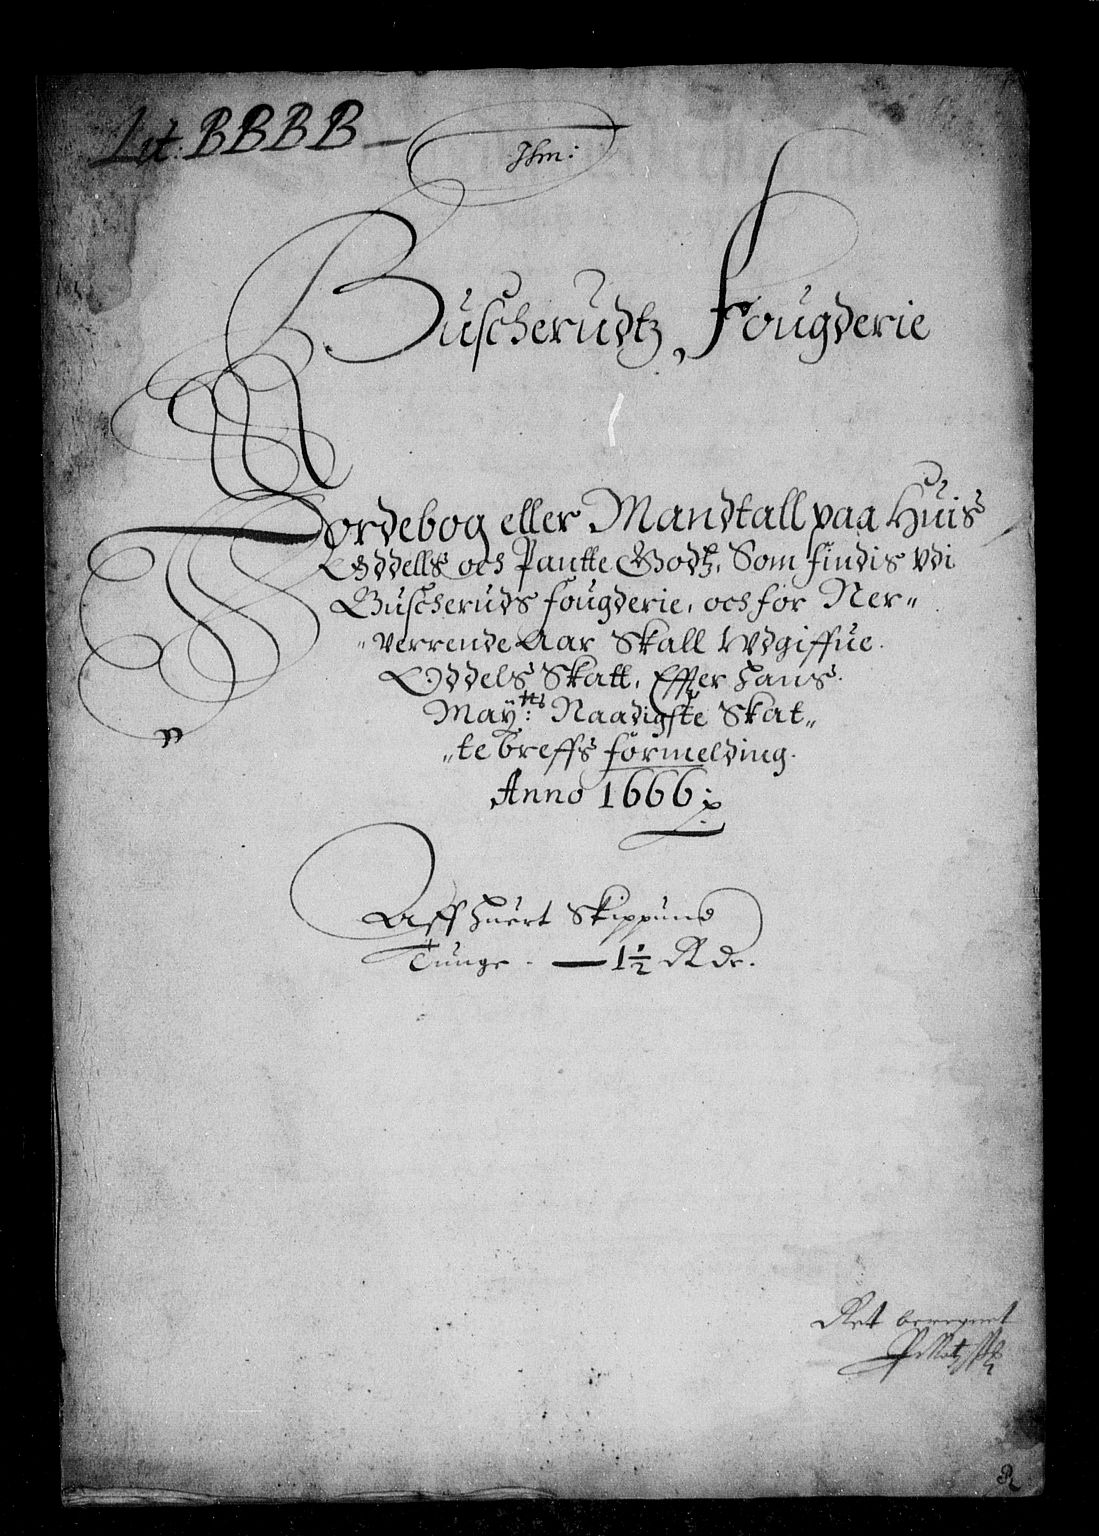 Lit. BBBB
Jhm:
Buscherudtz Fougderie
Jordebog eller Mandtall paa Huis
Oddells och Pantte Godtz, Som findis Vdi
Buscheruds fougderie, och for Ner„
„verrende Aar Skall Wdgiffue.
Oddels Skatt, Effter Hans
May:tts Naadigste Skat„
„tebreffs formelding.
Anno 1666
Aff Huert Skippund
Tunge - 1½ Rdr.
Ret beregnet